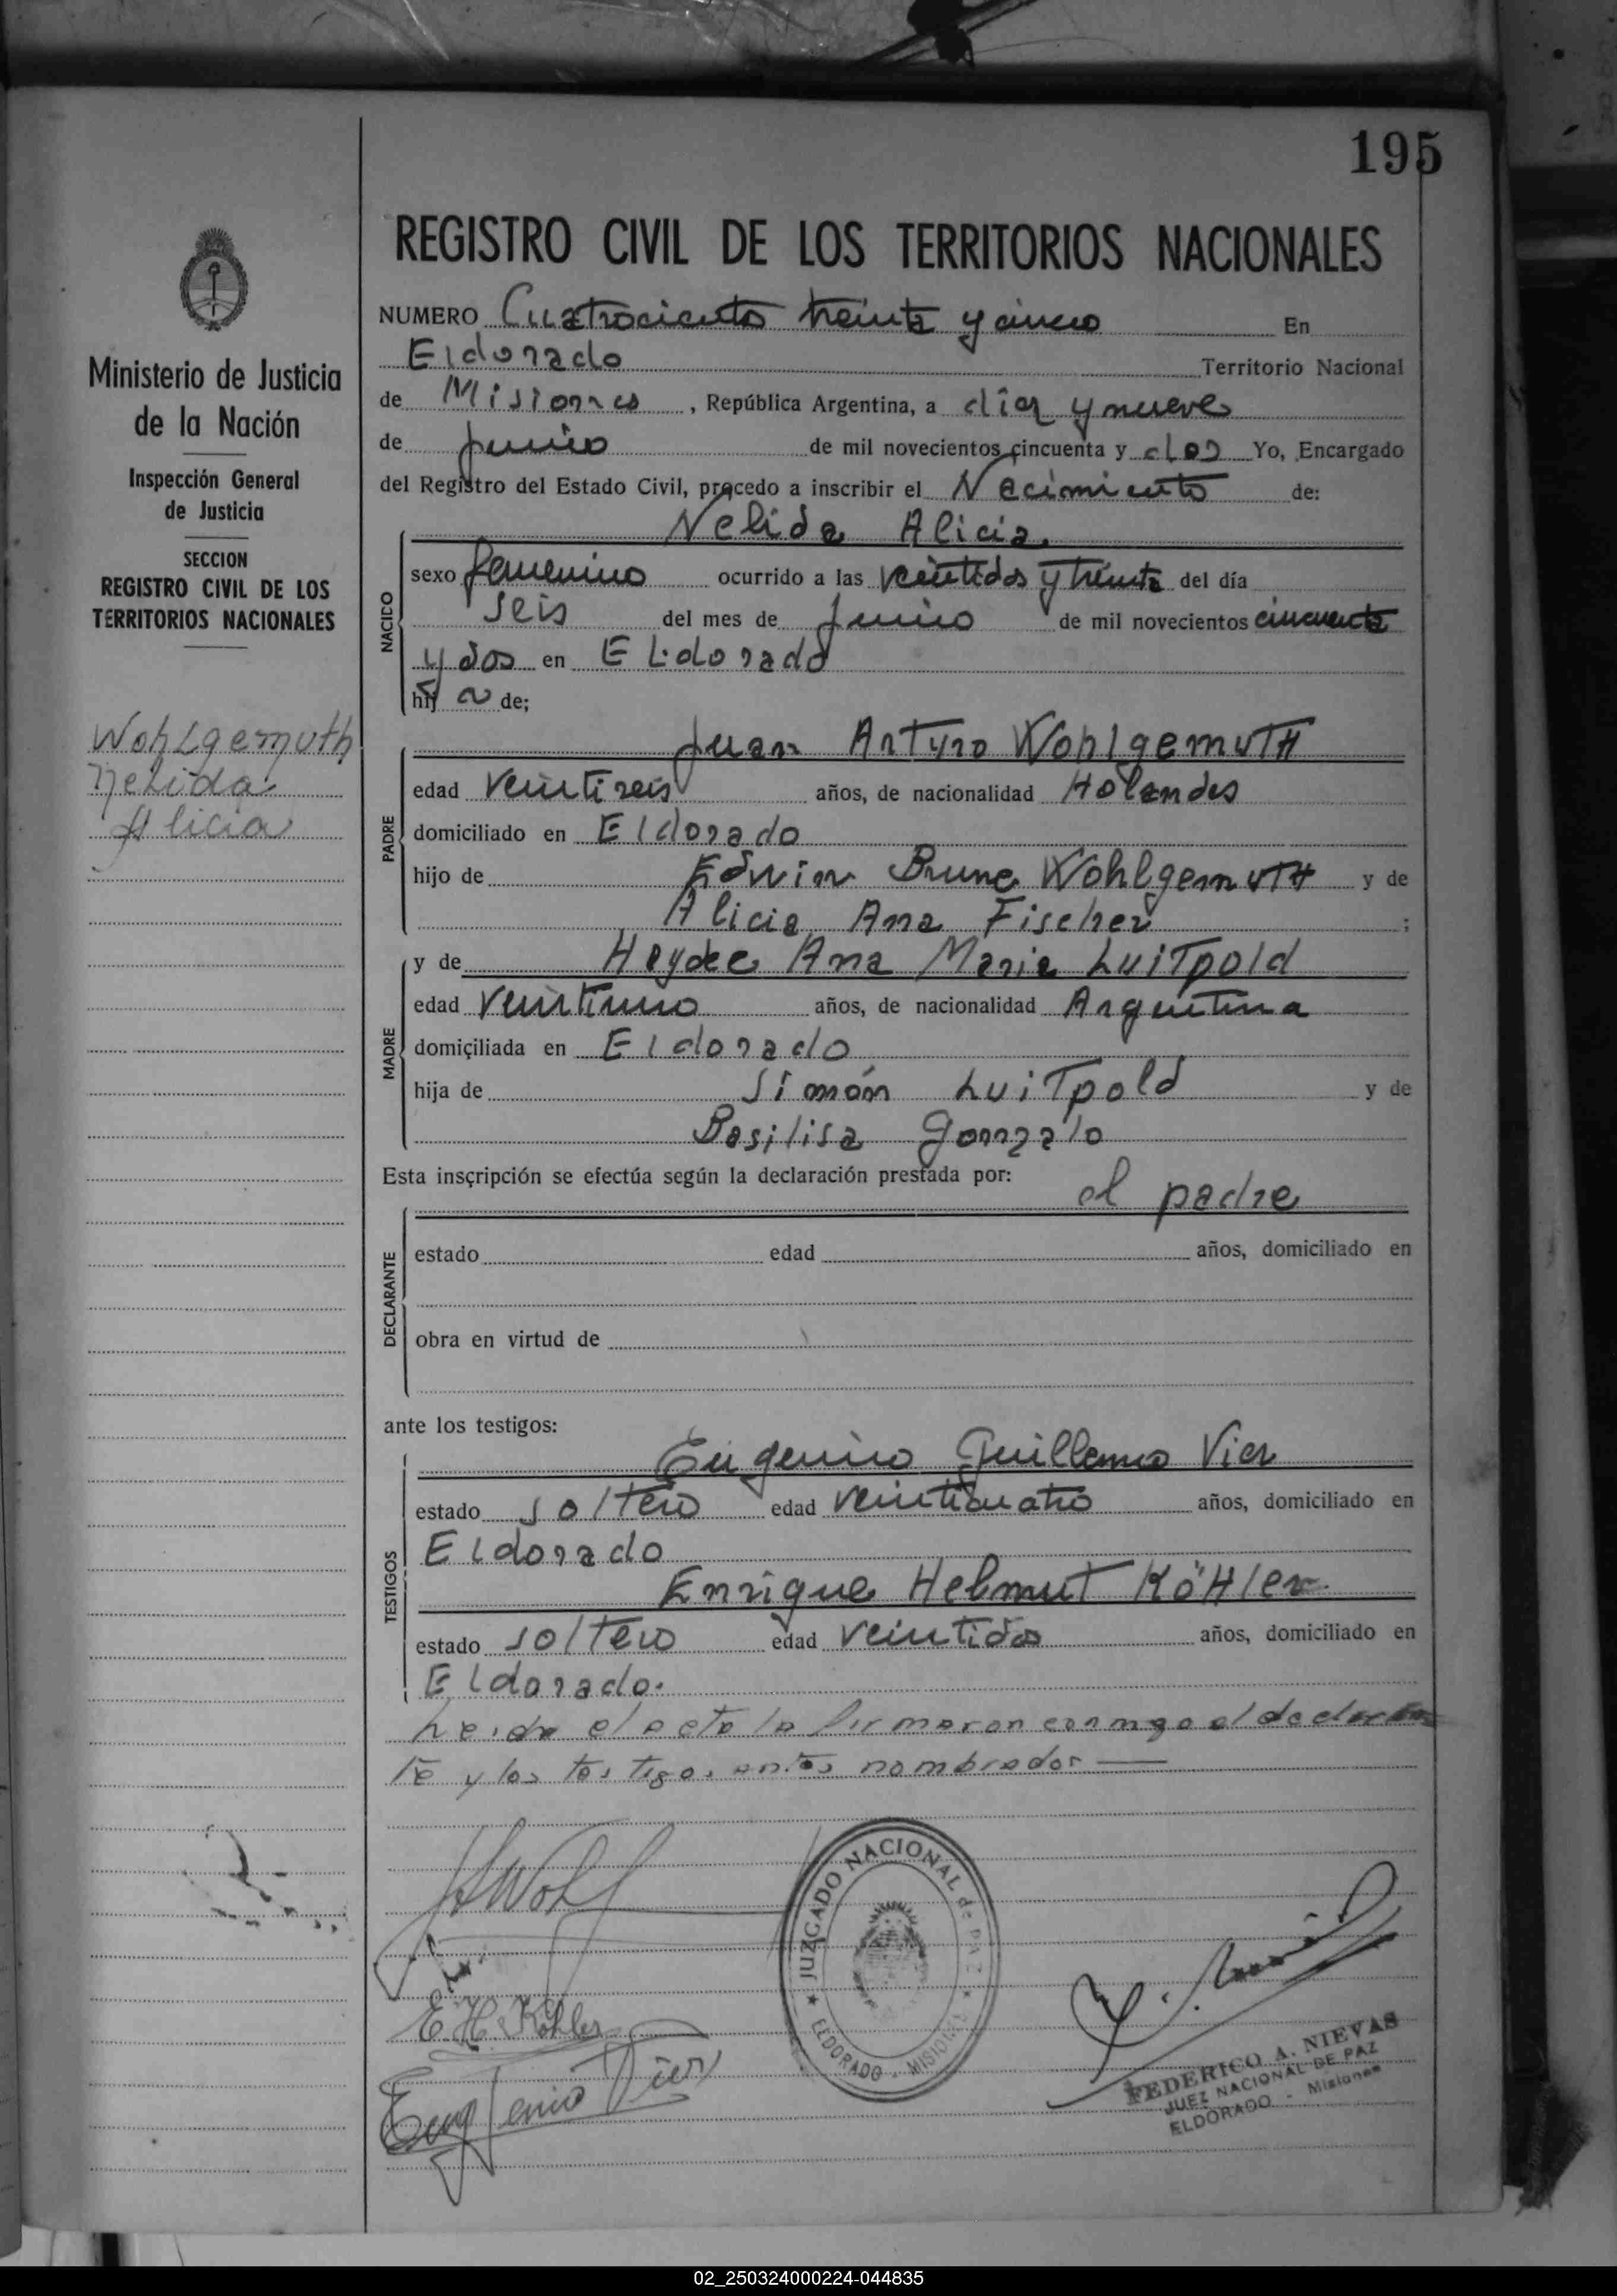 195
REGISTRO CIVIL DE LOS TERRITORIOS NACIONALES
Ministerio de Justicia
de la Nación
Inspección General
de Justicia
SECCION
REGISTRO CIVIL DE LOS
TERRITORIOS NACIONALES
Wohlgemuth
Nelida
Alicia
NUMERO Cuatrociento treinta y cinco En
Eldorado Territorio Nacional
de Misiones, República Argentina, a diez y nueve
de Junio de mil novecientos cincuenta y dos Yo, Encargado
del Registro del Estado Civil, procedo a inscribir el Nacimiento de:
NACIDO
Nelida Alicia
sexo femenino ocurrido a las veintidos y treinta del día
seis del mes de Junio de mil novecientos cincuenta
y dos en Eldorado
hij a de;
PADRE
Juan Arturo Wohlgemuth
edad veintiseis años, de nacionalidad Holandes
domiciliado en Eldorado
hijo de Edwin Bruno Wohlgemuth y de
Alicia Ana Fischer ;
MADRE
y de Haydee Ana Maria Luitpold
edad veintiuno años, de nacionalidad Argentina
domiciliada en Eldorado
hija de Simón Luitpold y de
Basilisa Gonzalo
Esta inscripción se efectúa según la declaración prestada por:
DECLARANTE
el padre
estado edad años, domiciliado en
obra en virtud de
ante los testigos:
TESTIGOS
Eugenio Guillermo Vier
estado soltero edad veinticuatro años, domiciliado en
Eldorado
Enrique Helmut Köhler
estado soltero edad veintidos años, domiciliado en
Eldorado.
Leida el acta la firmaron conmigo el declaran
te y los testigos antes nombrados
E. H. Köhler
Eugenio Vier
JUZGADO NACIONAL de PAZ
ELDORADO - MISIONES
FEDERICO A. NIEVAS
JUEZ NACIONAL DE PAZ
ELDORADO - Misiones
02_250324000224-044835